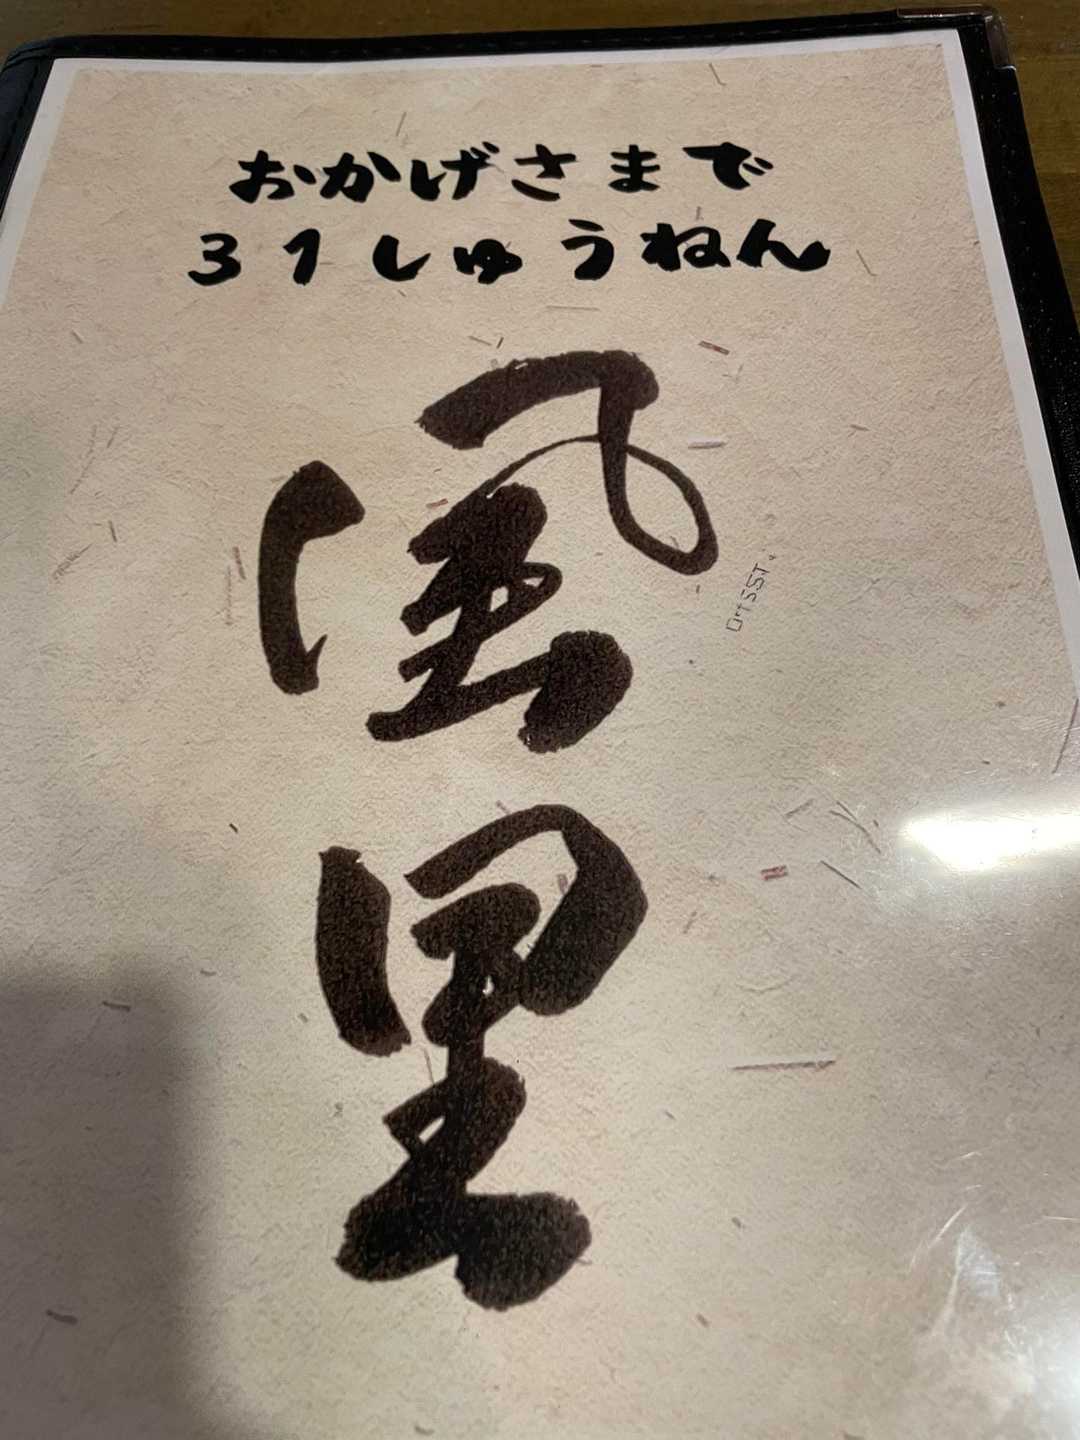 おかげさまで
31しゅうねん
風里